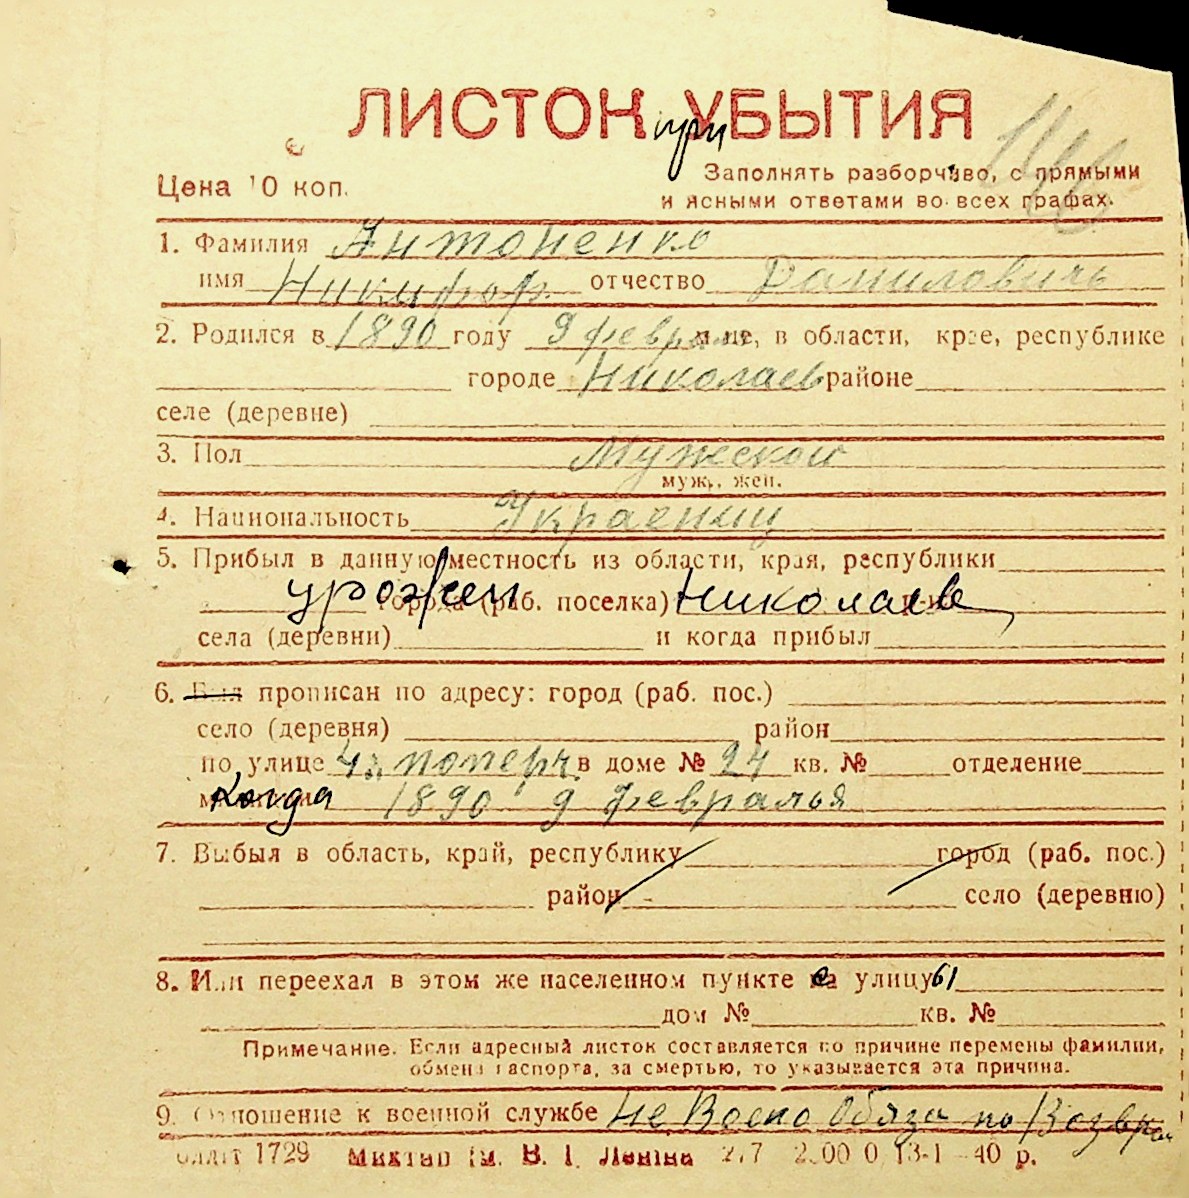 ЛИСТОК при УБЫТИЯ
Цена 10 коп.
Заполнять разборчиво, с прямыми
и ясными ответами во всех графах.
1. Фамилия Антоненко
имя Никифор. отчество Данилович
2. Родился в 1890 году 9 февраля м-це, в области, крае, республике
городе Николаев районе
селе (деревне)
3. Пол Мужской
муж., жен.
4. Национальность Украениц
5. Прибыл в данную местность из области, края, республики
урожен города (раб. поселка) Николаев
села (деревни) и когда прибыл
6. Был прописан по адресу: город (раб. пос.)
село (деревня) район
по улице 4я поперч. в доме № 24 кв. № отделение
когда 1890 9 февралья
7. Выбыл в область, край, республику город (раб. пос.)
район село (деревню)
8. Или переехал в этом же населенном пункте с улицы 61
дом № кв. №
Примечание. Если адресный листок составляется по причине перемены фамилии,
обмена паспорта, за смертью, то указывается эта причина.
9. Отношение к военной службе Не Воено Обяза по Возвра
1729 Миктип Ім. В. І. Леніна 40 р.